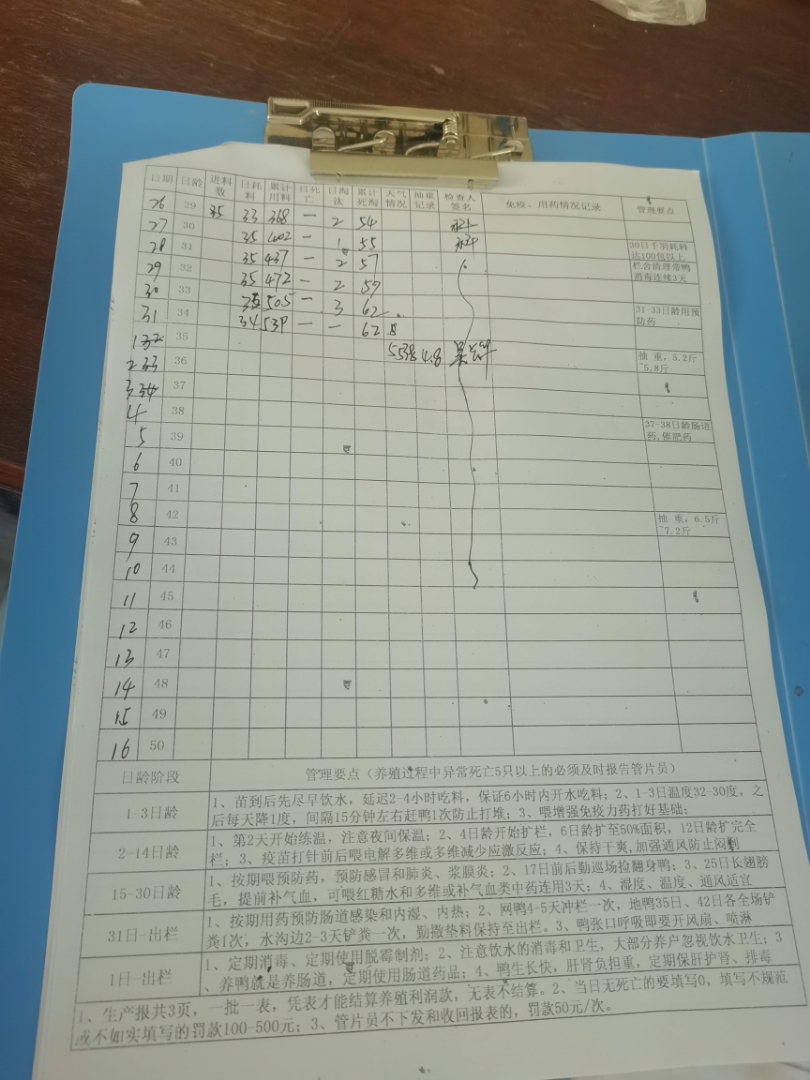 日期 日龄 进料数 日耗料 累计用料 日死亡 日淘汰 累计死淘 天气情况 抽重记录 检查人签名 免疫、用药情况记录 管理要点
26 29 35 33 368 — 2 54
27 30 35 402 — 1 55 30日千羽耗料达100包以上
28 31 35 437 — 2 57 栏舍清理带鸭消毒连续3天
29 32 35 472 — 2 59
30 33 505 — 3 62 31-33日龄用预防药
31 34 34 539 — — 62
35
36 5538 4.8 抽重，5.2斤~5.8斤
37
4 38 37-38日龄肠道药,催肥药
5 39
6 40
7 41
8 42 抽重，6.5斤~7.2斤
9 43
10 44
11 45
12 46
13 47
14 48
15 49
16 50
日龄阶段 管理要点（养殖过程中异常死亡5只以上的必须及时报告管片员）
1-3日龄 1、苗到后先尽早饮水，延迟2-4小时吃料，保证6小时内开水吃料；2、1-3日温度32-30度，之
后每天降1度，间隔15分钟左右赶鸭1次防止打堆；3、喂增强免疫力药打好基础；
2-14日龄 1、第2天开始练温，注意夜间保温；2、4日龄开始扩栏，6日龄扩至50%面积，12日龄扩完全
栏；3、疫苗打针前后喂电解多维或多维减少应激反应；4、保持干爽,加强通风防止闷到
15-30日龄 1、按期喂预防药，预防感冒和肺炎、浆膜炎；2、17日前后勤巡场捡翻身鸭；3、25日长翅膀
毛，提前补气血，可喂红糖水和多维或补气血类中药连用3天；4、湿度、温度、通风适宜
31日-出栏 1、按期用药预防肠道感染和内湿、内热；2、网鸭4-5天冲栏一次，地鸭35日、42日各全场铲
粪1次，水沟边2-3天铲粪一次，勤撒垫料保持至出栏。3、鸭张口呼吸即要开风扇、喷淋
1日-出栏 1、定期消毒、定期使用脱霉制剂；2、注意饮水的消毒和卫生，大部分养户忽视饮水卫生；3
、养鸭就是养肠道，定期使用肠道药品；4、鸭生长快，肝肾负担重，定期保肝护肾、排毒
1、生产报共3页，一批一表，凭表才能结算养殖利润款，无表不结算。2、当日无死亡的要填写0，填写不规范
或不如实填写的罚款100-500元；3、管片员不下发和收回报表的，罚款50元/次。